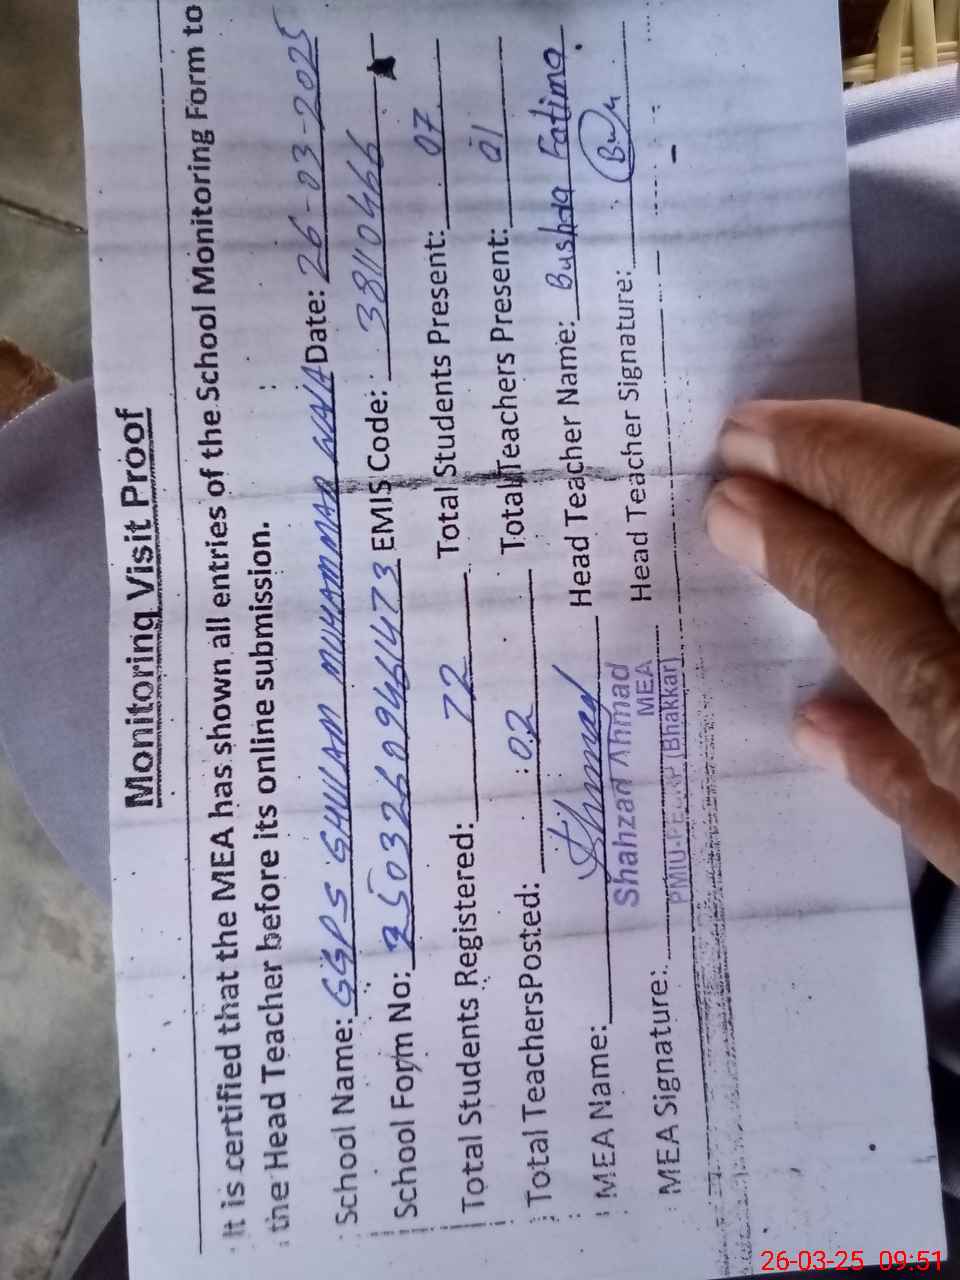 Monitoring Visit Proof
It is certified that the MEA has shown all entries of the School Monitoring Form to
the Head Teacher before its online submission.
School Name: GGPS GHULAM MUHAMMAD WALA Date: 26-03-2025
School Form No: EMIS Code: 38110466
Total Students Registered: 72 Total Students Present: 07
Total TeachersPosted: 02 Total Teachers Present: 01
MEA Name: Head Teacher Name: Bushra Fatima
Shahzad Ahmad
MEA
MEA Signature: Head Teacher Signature:
PMIU-PESRP (Bhakkar)
26-03-25 09:51